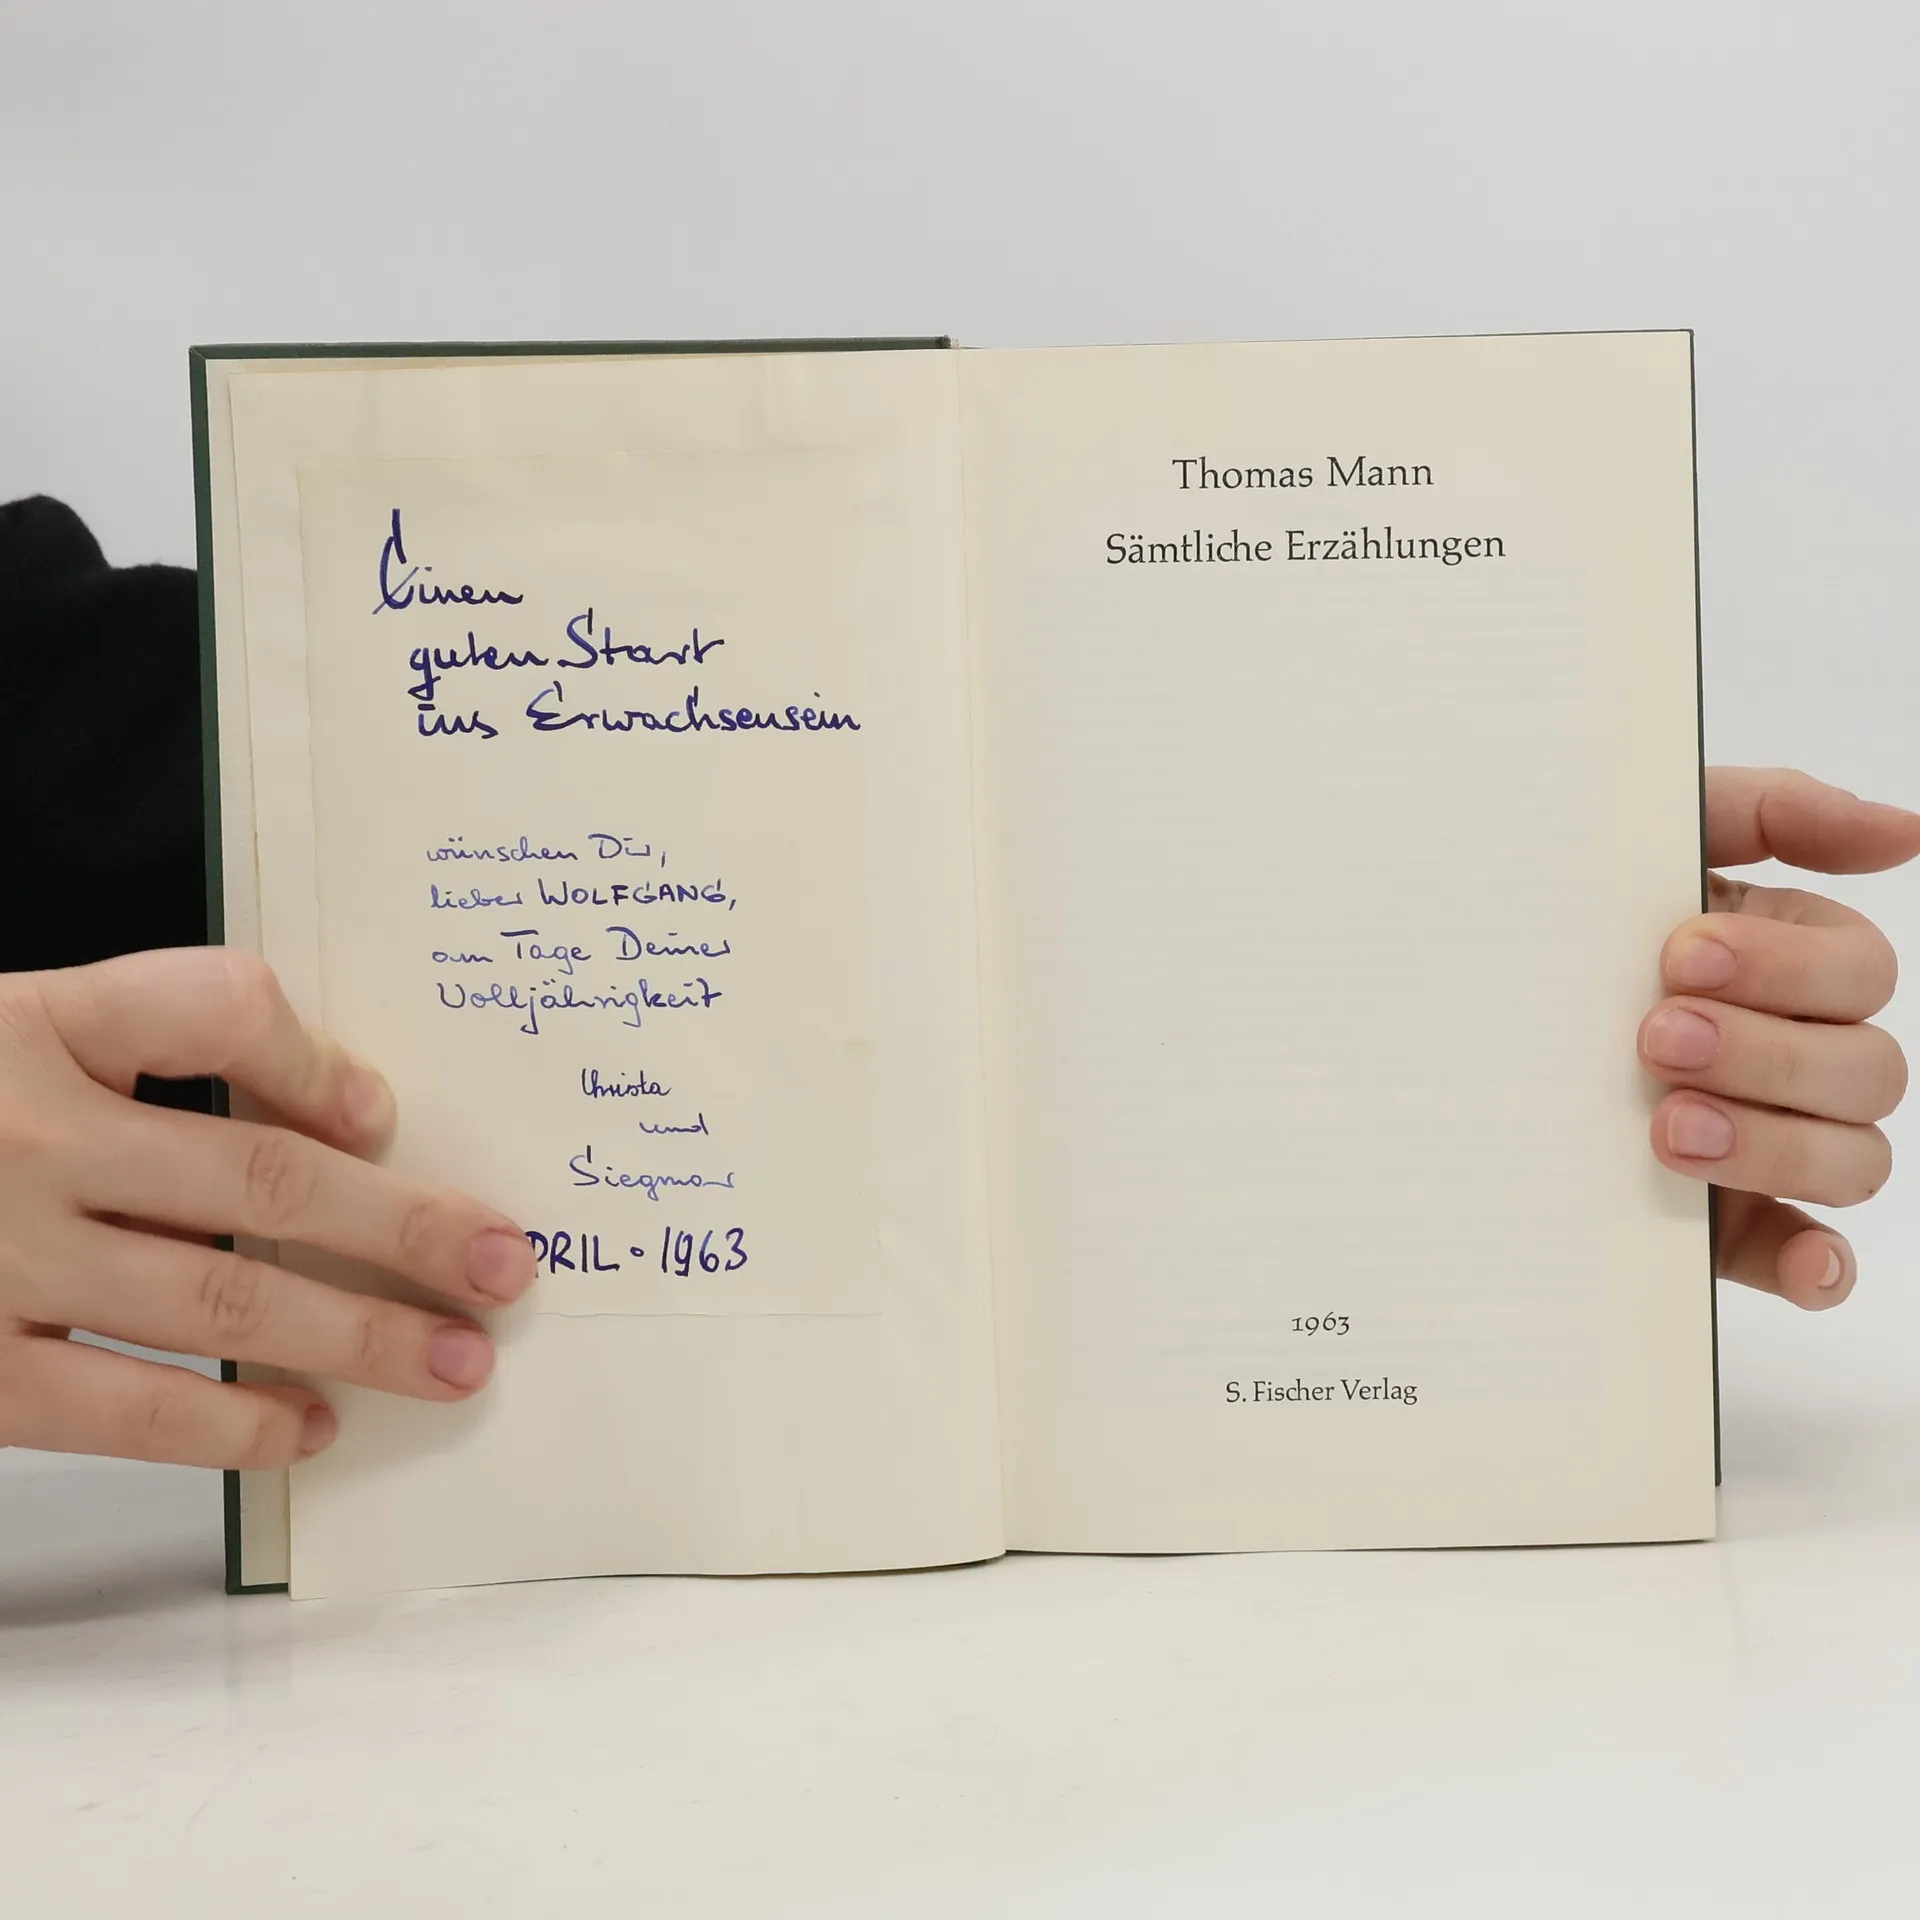 Einen
guten Start
ins Erwachsensein
wünschen Dir,
lieber WOLFGANG,
am Tage Deiner
Volljährigkeit
Christa
und
Siegmar
PRIL • 1963
Thomas Mann
Sämtliche Erzählungen
1963
S. Fischer Verlag